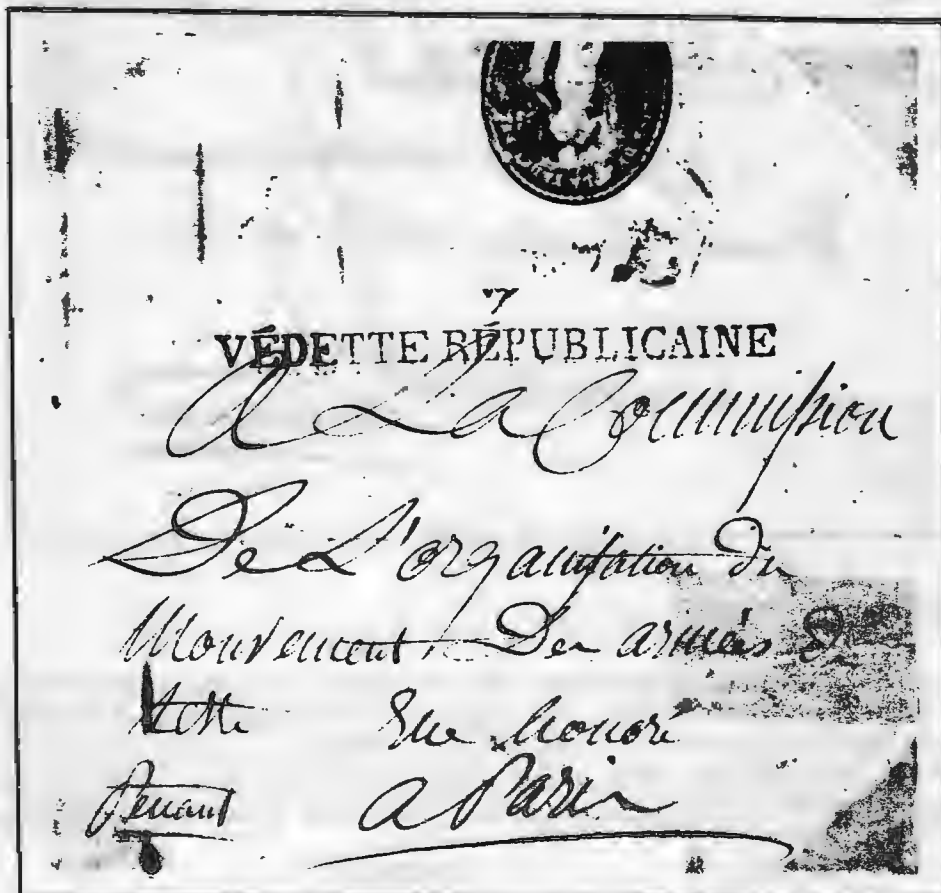 7
VÉDETTE RÉPUBLICAINE
A La Commission
De L'organisation Du
Mouvement Des armées D
Rue honoré
a Paris